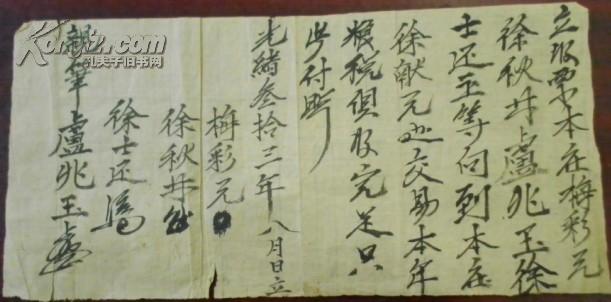 立收票本庄梅彩元
徐秋井盧兆玉徐
士还玉等向到本庄
徐献元边交易本年
粮税俱收完足只
此付照
光緒叁拾三年八月日立
梅彩元
徐秋井
徐士还
親筆盧兆玉
孔夫子旧书网